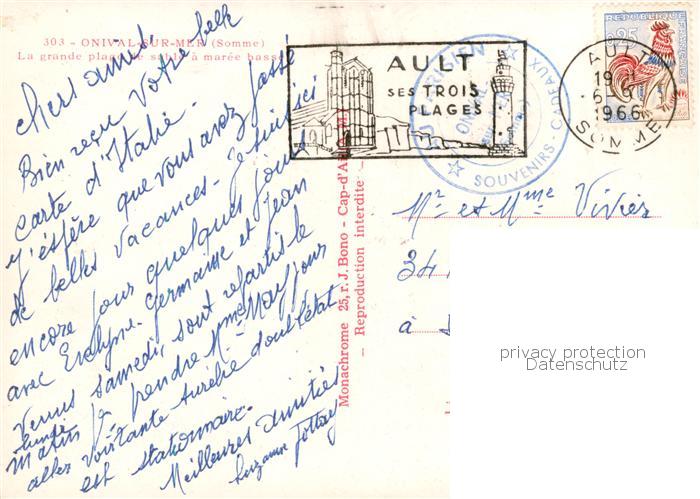 303 - ONIVAL-SUR-MER (Somme)
La grande plage de sable à marée basse
Chers amis
Bien reçu votre belle
carte d'Italie.
J'espère que vous avez passé
de belles vacances - Je suis ici
encore pour quelques jours
avec Evelyne. Germaine et Jean
venus samedi, sont repartis le
lundi
matin prendre Mme
aller visiter tante Aurélie dont l'état
est stationnaire.
Meilleures amitiés
Suzanne
Monachrome 25, r. J. Bono - Cap-d'A
Reproduction interdite
AULT
SES TROIS
PLAGES
ONIVAL
SOUVENIRS - CADEAUX
REPUBLIQUE
FRANÇAISE
0,25
1966
SOMME
Mr et Mme Vivier
34
à
privacy protection
Datenschutz